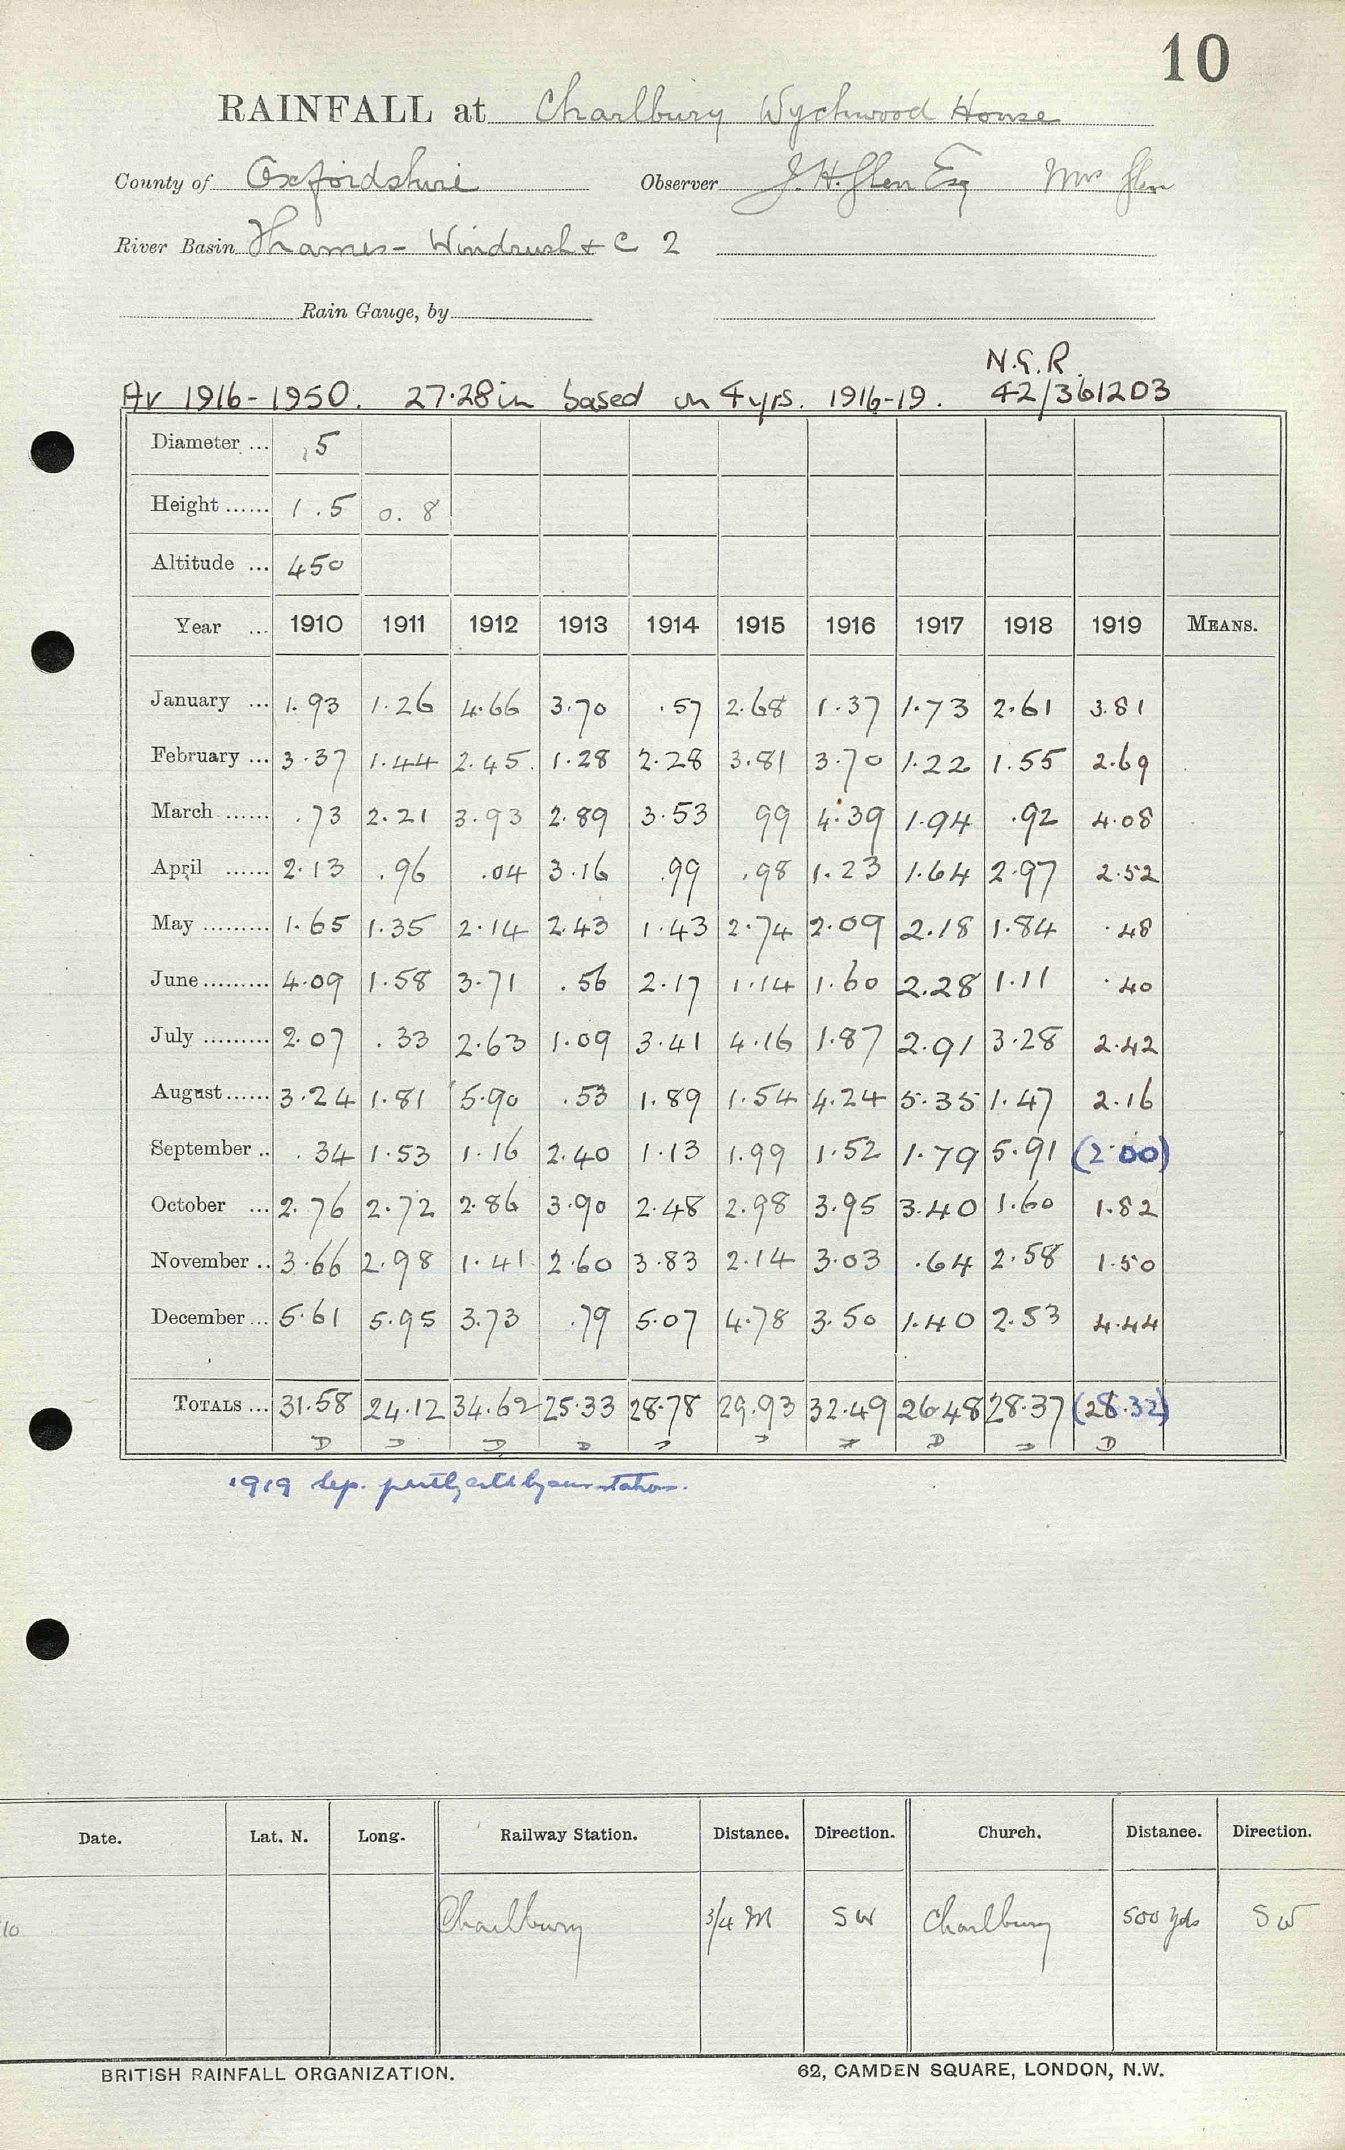 10
RAINFALL at Charlbury Wychwood House
County of Oxfordshire Observer J. H. Glen Esq Mrs Glen
River Basin Thames - Windrush & C 2
Rain Gauge, by
N.G.R.
Av 1916-1950. 27.28 in based on 4 yrs. 1916-19. 42/361203
Diameter ... 5
Height ...... 1.5 0.8
Altitude ... 450
Year ... 1910 1911 1912 1913 1914 1915 1916 1917 1918 1919 MEANS.
January ... 1.93 1.26 4.66 3.70 .57 2.68 1.37 1.73 2.61 3.81
February ... 3.37 1.44 2.45 1.28 2.28 3.81 3.70 1.22 1.55 2.69
March ...... .73 2.21 3.93 2.89 3.53 99 4.39 1.94 .92 4.08
April ...... 2.13 .96 .04 3.16 .99 .98 1.23 1.64 2.97 2.52
May ......... 1.65 1.35 2.14 2.43 1.43 2.74 2.09 2.18 1.84 .48
June ......... 4.09 1.58 3.71 .56 2.17 1.14 1.60 2.28 1.11 .40
July ......... 2.07 .33 2.63 1.09 3.41 4.16 1.87 2.91 3.28 2.42
August ...... 3.24 1.81 5.90 .53 1.89 1.54 4.24 5.35 1.47 2.16
September .. .34 1.53 1.16 2.40 1.13 1.99 1.52 1.79 5.91 (2.00)
October ... 2.76 2.72 2.86 3.90 2.48 2.98 3.95 3.40 1.60 1.82
November .. 3.66 2.98 1.41 2.60 3.83 2.14 3.03 .64 2.58 1.50
December ... 5.61 5.95 3.73 .79 5.07 4.78 3.50 1.40 2.53 4.44
TOTALS ... 31.58 24.12 34.62 25.33 28.78 29.93 32.49 26.48 28.37 (28.32)
D D D D D D D D D D
1919 Sep. partly estd by our station.
Date. Lat. N. Long. Railway Station. Distance. Direction. Church. Distance. Direction.
10 Charlbury 3/4 M SW Charlbury 500 yds SW
BRITISH RAINFALL ORGANIZATION. 62, CAMDEN SQUARE, LONDON, N.W.